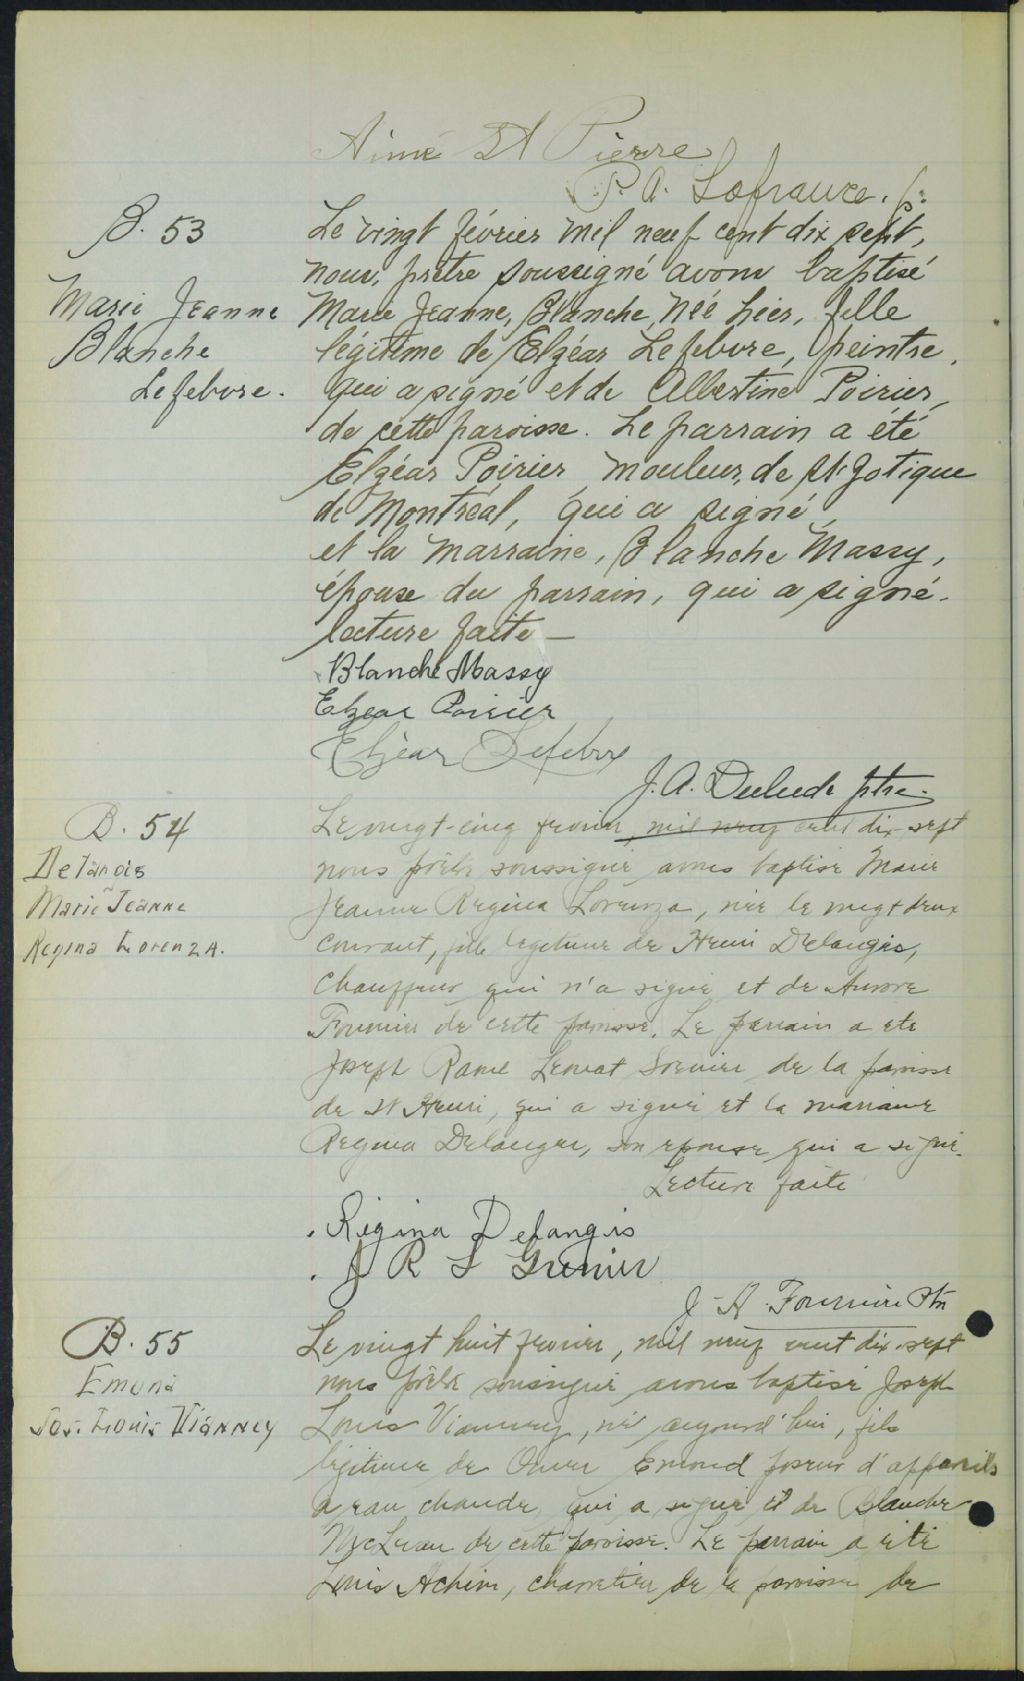 Aimé St Pierre
P. A. Lafrance. p.
B. 53
Marie Jeanne
Blanche
Lefebvre.
Le vingt février mil neuf cent dix sept,
nous, prêtre soussigné avons baptisé
Marie Jeanne, Blanche, née hier, fille
légitime de Elzéar Lefebvre, peintre,
qui a signé et de Albertine Poirier,
de cette paroisse. Le parrain a été
Elzéar Poirier, mouleur, de St. Zotique
de Montréal, qui a signé,
et la marraine, Blanche Massy,
épouse du parrain, qui a signé.
lecture faite —
Blanche Massy
Elzear Poirier
Elzéar Lefebvre
J. A. Dulude ptre.
B. 54
Delangis
Marie Jeanne
Regina Lorenza.
Le vingt-cinq fevrier, mil neuf cent dix-sept
nous prêtre soussigné avons baptisé Marie
Jeanne Regina Lorenza, née le vingt deux
courant, fille legitime de Henri Delangis,
chauffeur qui n'a signé et de Aurore
Fournier de cette paroisse. Le parrain a ete
Joseph Raoul Leonat Grenier de la paroisse
de St Henri, qui a signé et la marraine
Regina Delangis, son epouse qui a signé.
Lecture faite
Régina Delangis
J R L Grenier
J-H. Fournier Ptr
B. 55
Emond
Jos. Louis Vianney
Le vingt huit fevrier, mil neuf cent dix-sept
nous prêtre soussigné avons baptisé Joseph
Louis Vianney, né aujourd'hui, fils
légitime de Omer Emond poseur d'appareils
a eau chaude, qui a signé et de Blanche
McLean de cette paroisse. Le parrain a été
Louis Achim, charretier de la paroisse de